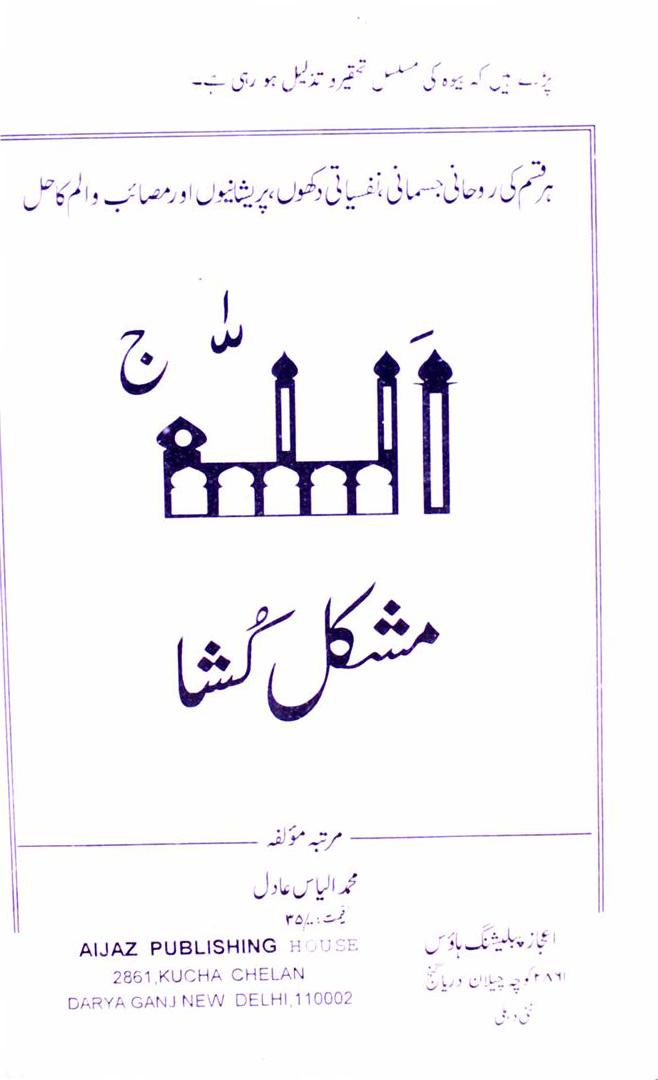 پڑے ہیں کہ بیوہ کی مسلسل تحقیر و تذلیل ہو رہی ہے۔
ہر قسم کی روحانی جسمانی، نفسیاتی دکھوں، پریشانیوں اور مصائب و الم کا حل
اَللّٰہ ج
مشکل کُشا
مرتبہ مؤلفہ
محمد الیاس عادل
قیمت: ۳۵/-
AIJAZ PUBLISHING HOUSE
2861,KUCHA CHELAN
DARYA GANJ NEW DELHI,110002
اعجاز پبلیشنگ ہاؤس
۲۸۶۱ کوچہ چیلان دریا گنج
نئی دہلی